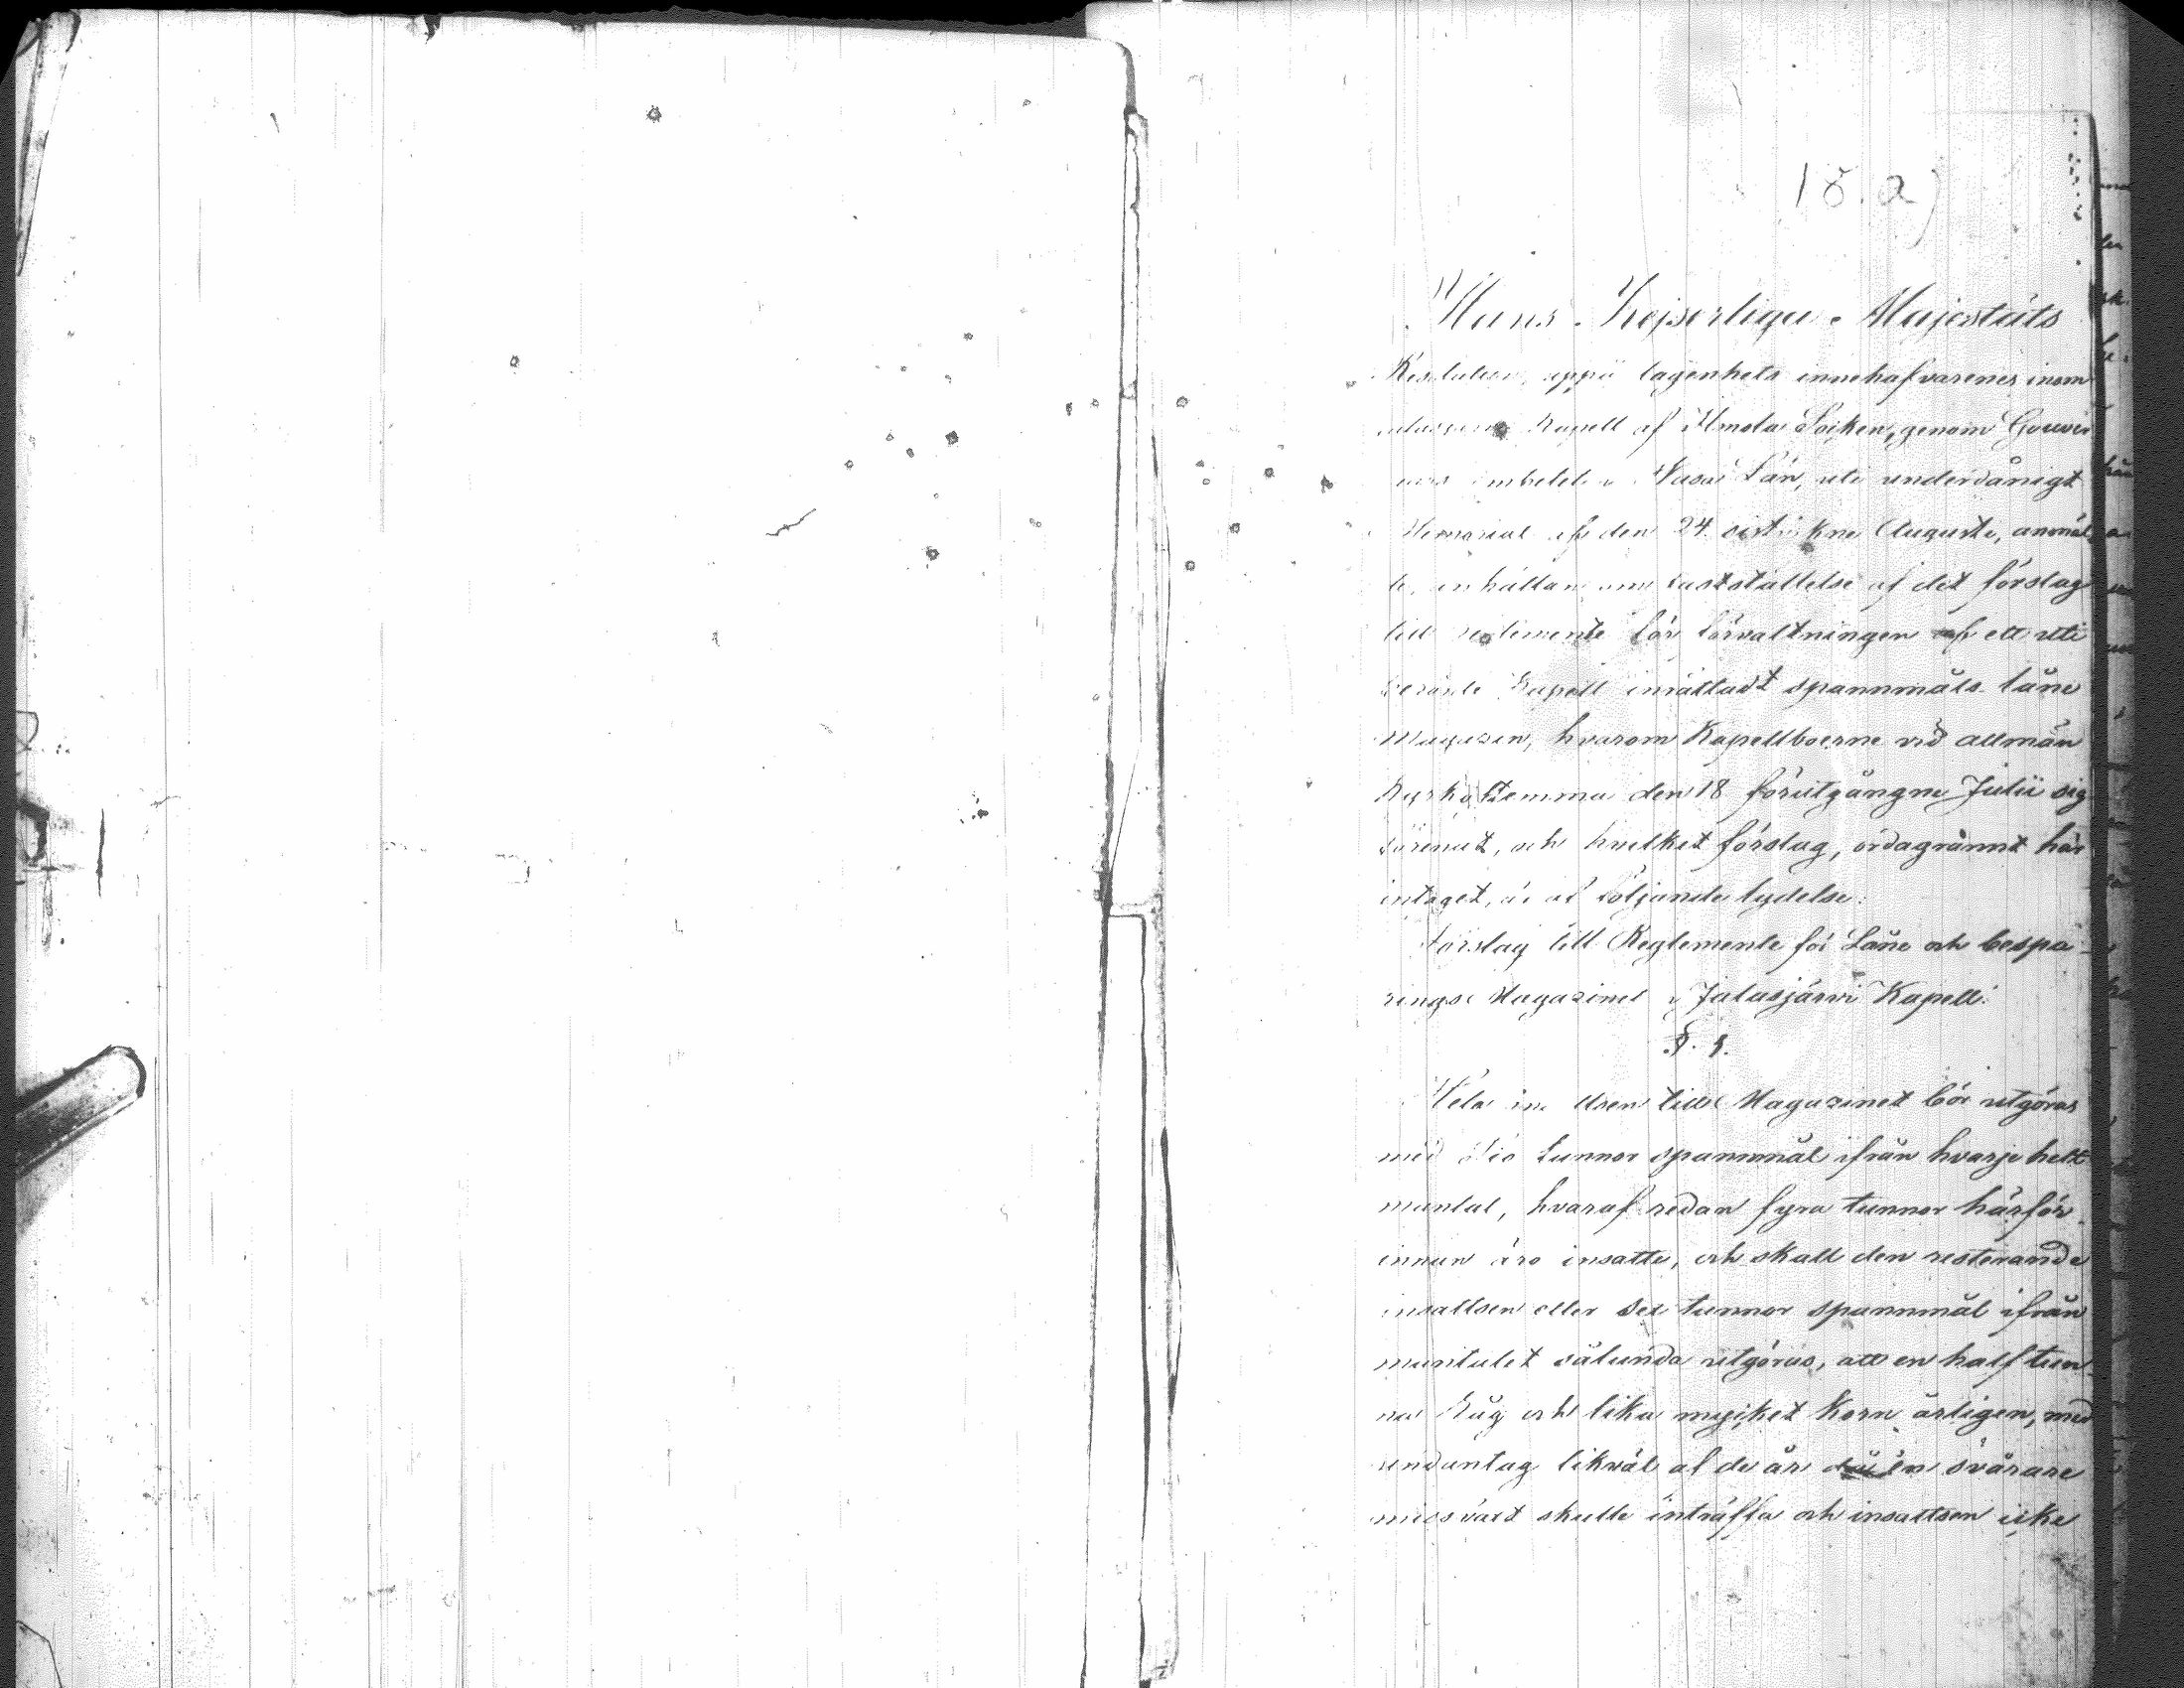 18. a)
Hans Kejserliga Majestäts
Resolution, uppå lägenhets innehafvarenes inom
Kapell af Ilmola Socken, genom Guver
embetet i Wasa Län, uti underdånigt
Memorial af den 24 sistlekne Augusti, anmäl
te, anhållan om fastställelse af det förslag
till reglemente för förvaltningen af ett uti
berörde Kapell inrättadt spannmåls låne
Magazin, hvarom Kapellboerne vid allmän
Kyrkostemma den 18 förutgångne Julii sig
förenat, och hvilket förslag, ordagrannt här
intaget, är af följande lydelse:
Förslag till Reglemente för Låne och bespa
rings Magazinet i Jalasjärvi Kapell:
§. 1.
Hela insattsen till Magazinet bör utgöras
med Tio Tunnor spannmål ifrån hvarje helt
mantal, hvaraf redan fyra tunnor härför
innan äro insatte, och skall den resterande
insattsen eller sex tunnor spannmål ifrån
mantalet sålunda utgöras, att en half tun
na Råg och lika mycket Korn årligen, med
undantag likväl af de år då en svårare
missväxt skulle inträffa och insattsen icke